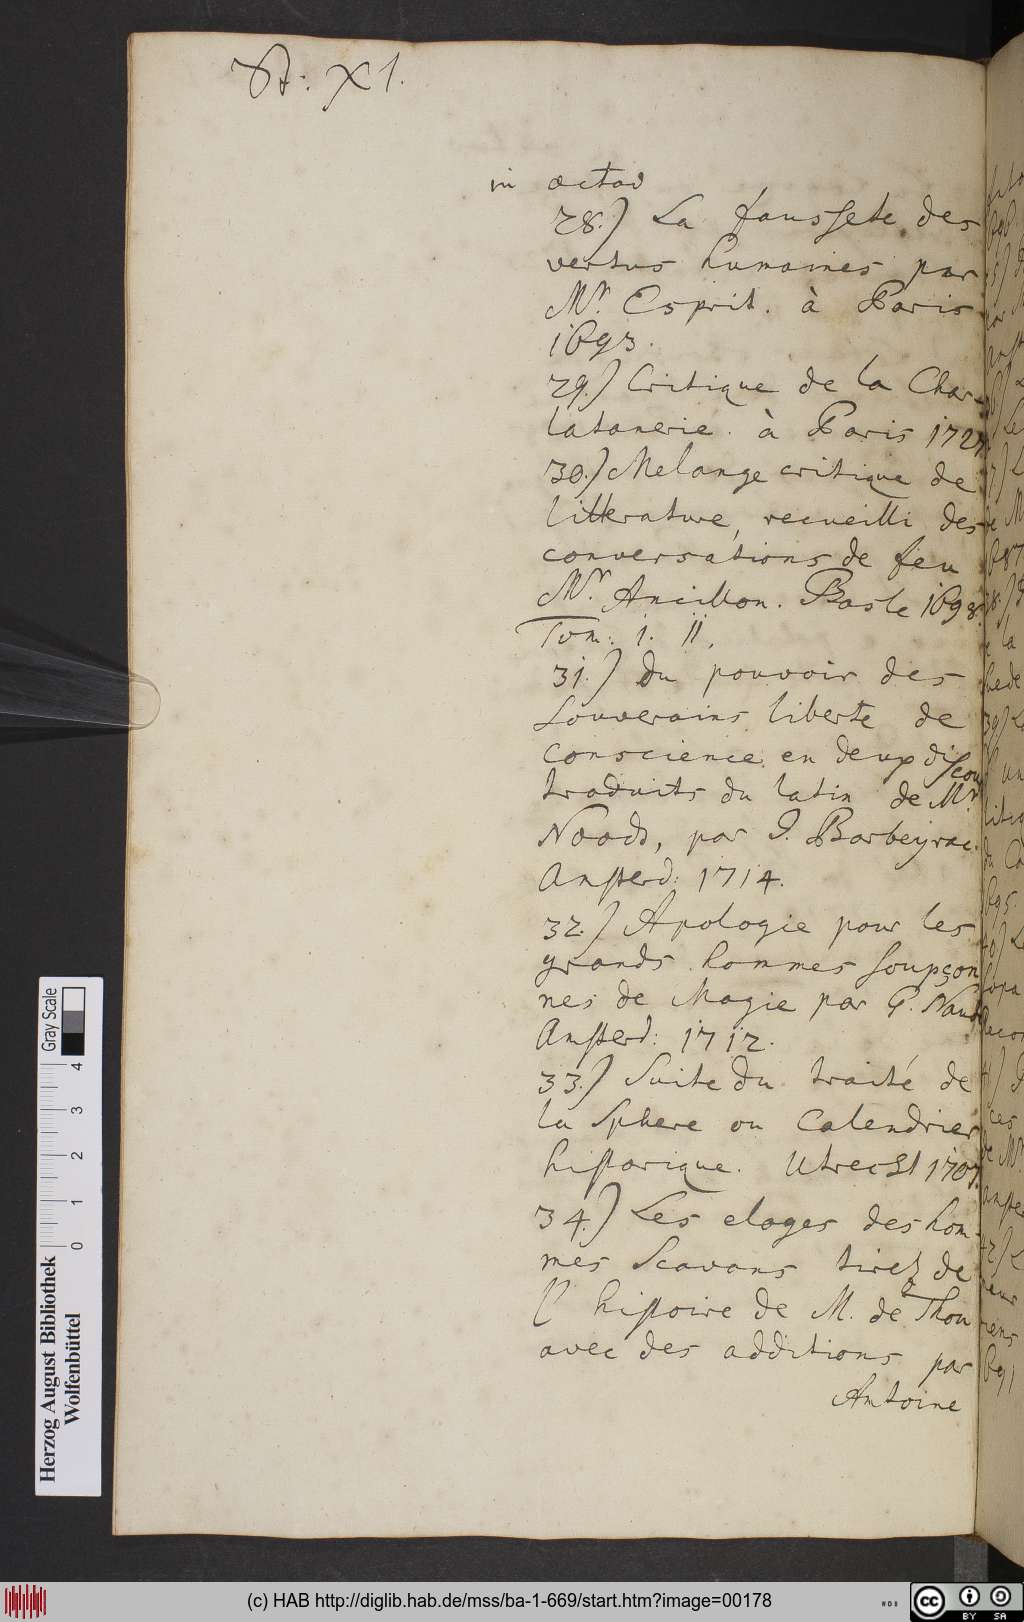 St: XI.
in octav
28.) La faussete des
vertus humaines par
Mr. Esprit. à Paris
1693.
29.) Critique de la Char-
latanerie. à Paris 1727.
30.) Melange critique de
litterature, recueilli des
conversations de feu
Mr. Ancillon. Basle 1698.
Tom: I. II.
31.) Du pouvoir des
Souverains liberte de
conscience en deux discou
traduits du latin de Mr
Noodt, par J. Barbeyrac.
Amsterd: 1714.
32.) Apologie pour les
grands hommes soupçon
nes de Magie par G. Naudé
Amsterd: 1712.
33.) Suite du traité de
la Sphere ou Calendrier
historique. Utrecht 1707.
34.) Les eloges des hom-
mes Scavans tirez de
l' histoire de M. de Thou
avec des additions par
Antoine
Gray Scale
4
3
2
1
0
Herzog August Bibliothek
Wolfenbüttel
(c) HAB http://diglib.hab.de/mss/ba-1-669/start.htm?image=00178
cc
BY SA